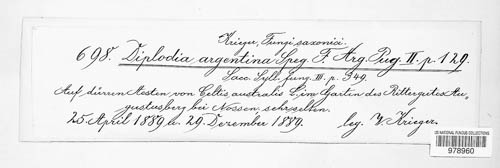 Krieger, Fungi saxonici.
698. Diplodia argentina Speg. F. Arg. Pug. II. p. 129.
Sacc. Syll. fung. III. p. 349.
Auf dürren Aesten von Celtis australis L. im Garten des Rittergutes Au=
gustusberg bei Nossen, sehr selten.
25. April 1889 u. 29. Dezember 1889. leg. W. Krieger.
US NATIONAL FUNGUS COLLECTIONS
978960